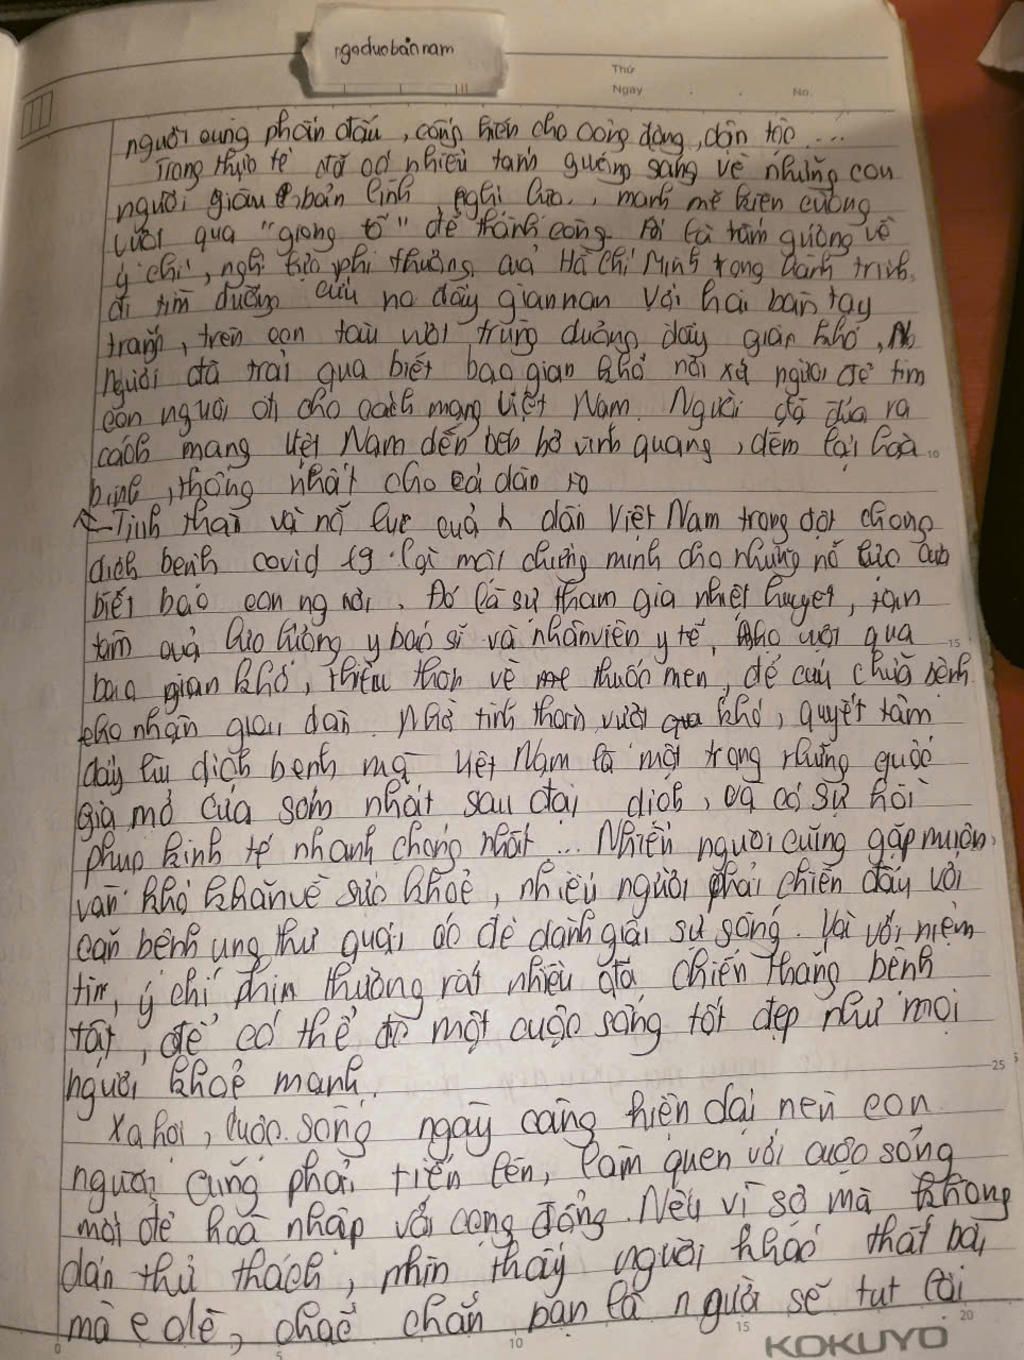 ngoduobannam
Thứ
Ngày . . No.
người cung phấn đấu, cống hiến cho cộng đồng, dân tộc ...
Trong thực tế đã có nhiều tấm gương sáng về những con
người giàu bản lĩnh, nghị lực, mạnh mẽ kiên cường
vượt qua "giông tố" để thành công. Đó là tấm gương về
ý chí, nghị lực phi thường của Hồ Chí Minh trong hành trình
đi tìm đường cứu nc đầy gian nan với hai bàn tay
trắng, trên con tàu vượt trùng dương đầy gian khó,
Người đã trải qua biết bao gian khổ nơi xứ người để tìm
con người đi cho cách mạng Việt Nam. Người đã đưa ra
cách mạng Việt Nam đến bến bờ vinh quang, đem lại hoà
bình, thống nhất cho cả dân tộ
Tinh thần và nỗ lực của dân Việt Nam trong đợt chống
dịch bệnh covid 19 lại một chứng minh cho những nỗ lực của
biết bao con người. Đó là sự tham gia nhiệt huyết, tận
tâm của lực lượng y bác sĩ và nhân viên y tế, họ vượt qua
bao gian khó, thiếu thốn về thuốc men, để cứu chữa bệnh
cho nhân dân. Nhờ tinh thần vượt qua khó, quyết tâm
đẩy lùi dịch bệnh mà Việt Nam là một trong những quốc
gia mở cửa sớm nhất sau đại dịch, và có sự hồi
phục kinh tế nhanh chóng nhất ... Nhiều người cũng gặp muôn
vàn khó khăn về sức khoẻ, nhiều người phải chiến đấu với
căn bệnh ung thư quái ác để dành giật sự sống. Vài với niệm
tin, ý chí phin thường rất nhiều đã chiến thắng bệnh
tật, để có thể một cuộc sống tốt đẹp như mọi
người khoẻ mạnh.
Xa hội, cuộc sống ngày càng hiện đại nên con
người cũng phải tiến lên, làm quen với cuộc sống
mới để hoà nhập với cộng đồng. Nếu vì sợ mà không
dán thử thách, nhìn thấy người khác thất bại
mà e dè, chắc chắn bạn là người sẽ tụt lài
10
15
25
0 5 10 15 20
KOKUYO